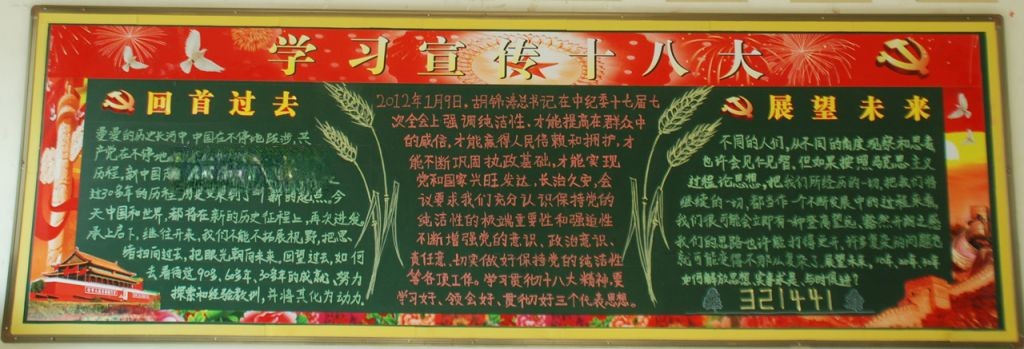 学习宣传十八大
回首过去
漫漫的历史长河中中国在不停地跋涉,共
产党在不停地
历程,新中国
过30多年的历程,历史又来到了一个新的起点,今
天中国和世界,都将在新的历史征程上,再次进发,
承上启下,继往开来,我们不能不拓展视野,把思
绪扫向过去,把眼光朝向未来,回望过去,如何
去看待这90多,60多年,30多年的成就,努力
探索和经验教训,并将其化为动力.
2012年1月9日,胡锦涛总书记在中纪委十七届七
次全会上强调纯洁性、才能提高在群众中
的威信,才能赢得人民信赖和拥护,才
能不断巩固执政基础,才能实现
党和国家兴旺发达、长治久安,会
议要求我们充分认识保持党的
纯洁性的极端重要性和强迫性
不断增强党的意识、政治意识、
责任意、切实做好保持党的纯洁性
答各项工作。学习贯彻十八大精神,要
学习好、领会好、贯彻好三个代表思想。
展望未来
不同的人们,从不同的角度观察和思考
也许会见仁见智,但如果按照马克思主义
过程论思想,把我们所经历的一切,把我们将
继续的一切,都当作一个不断发展中的过程来看
我们很可能会立即有一种登高望远,豁然开朗之感
我们的思路也许能打得更开,许多复杂的问题也
就可能变得不那么复杂了,展望未来,10年,20年,30年
如何解放思想,实事求是,与时俱进?
321441